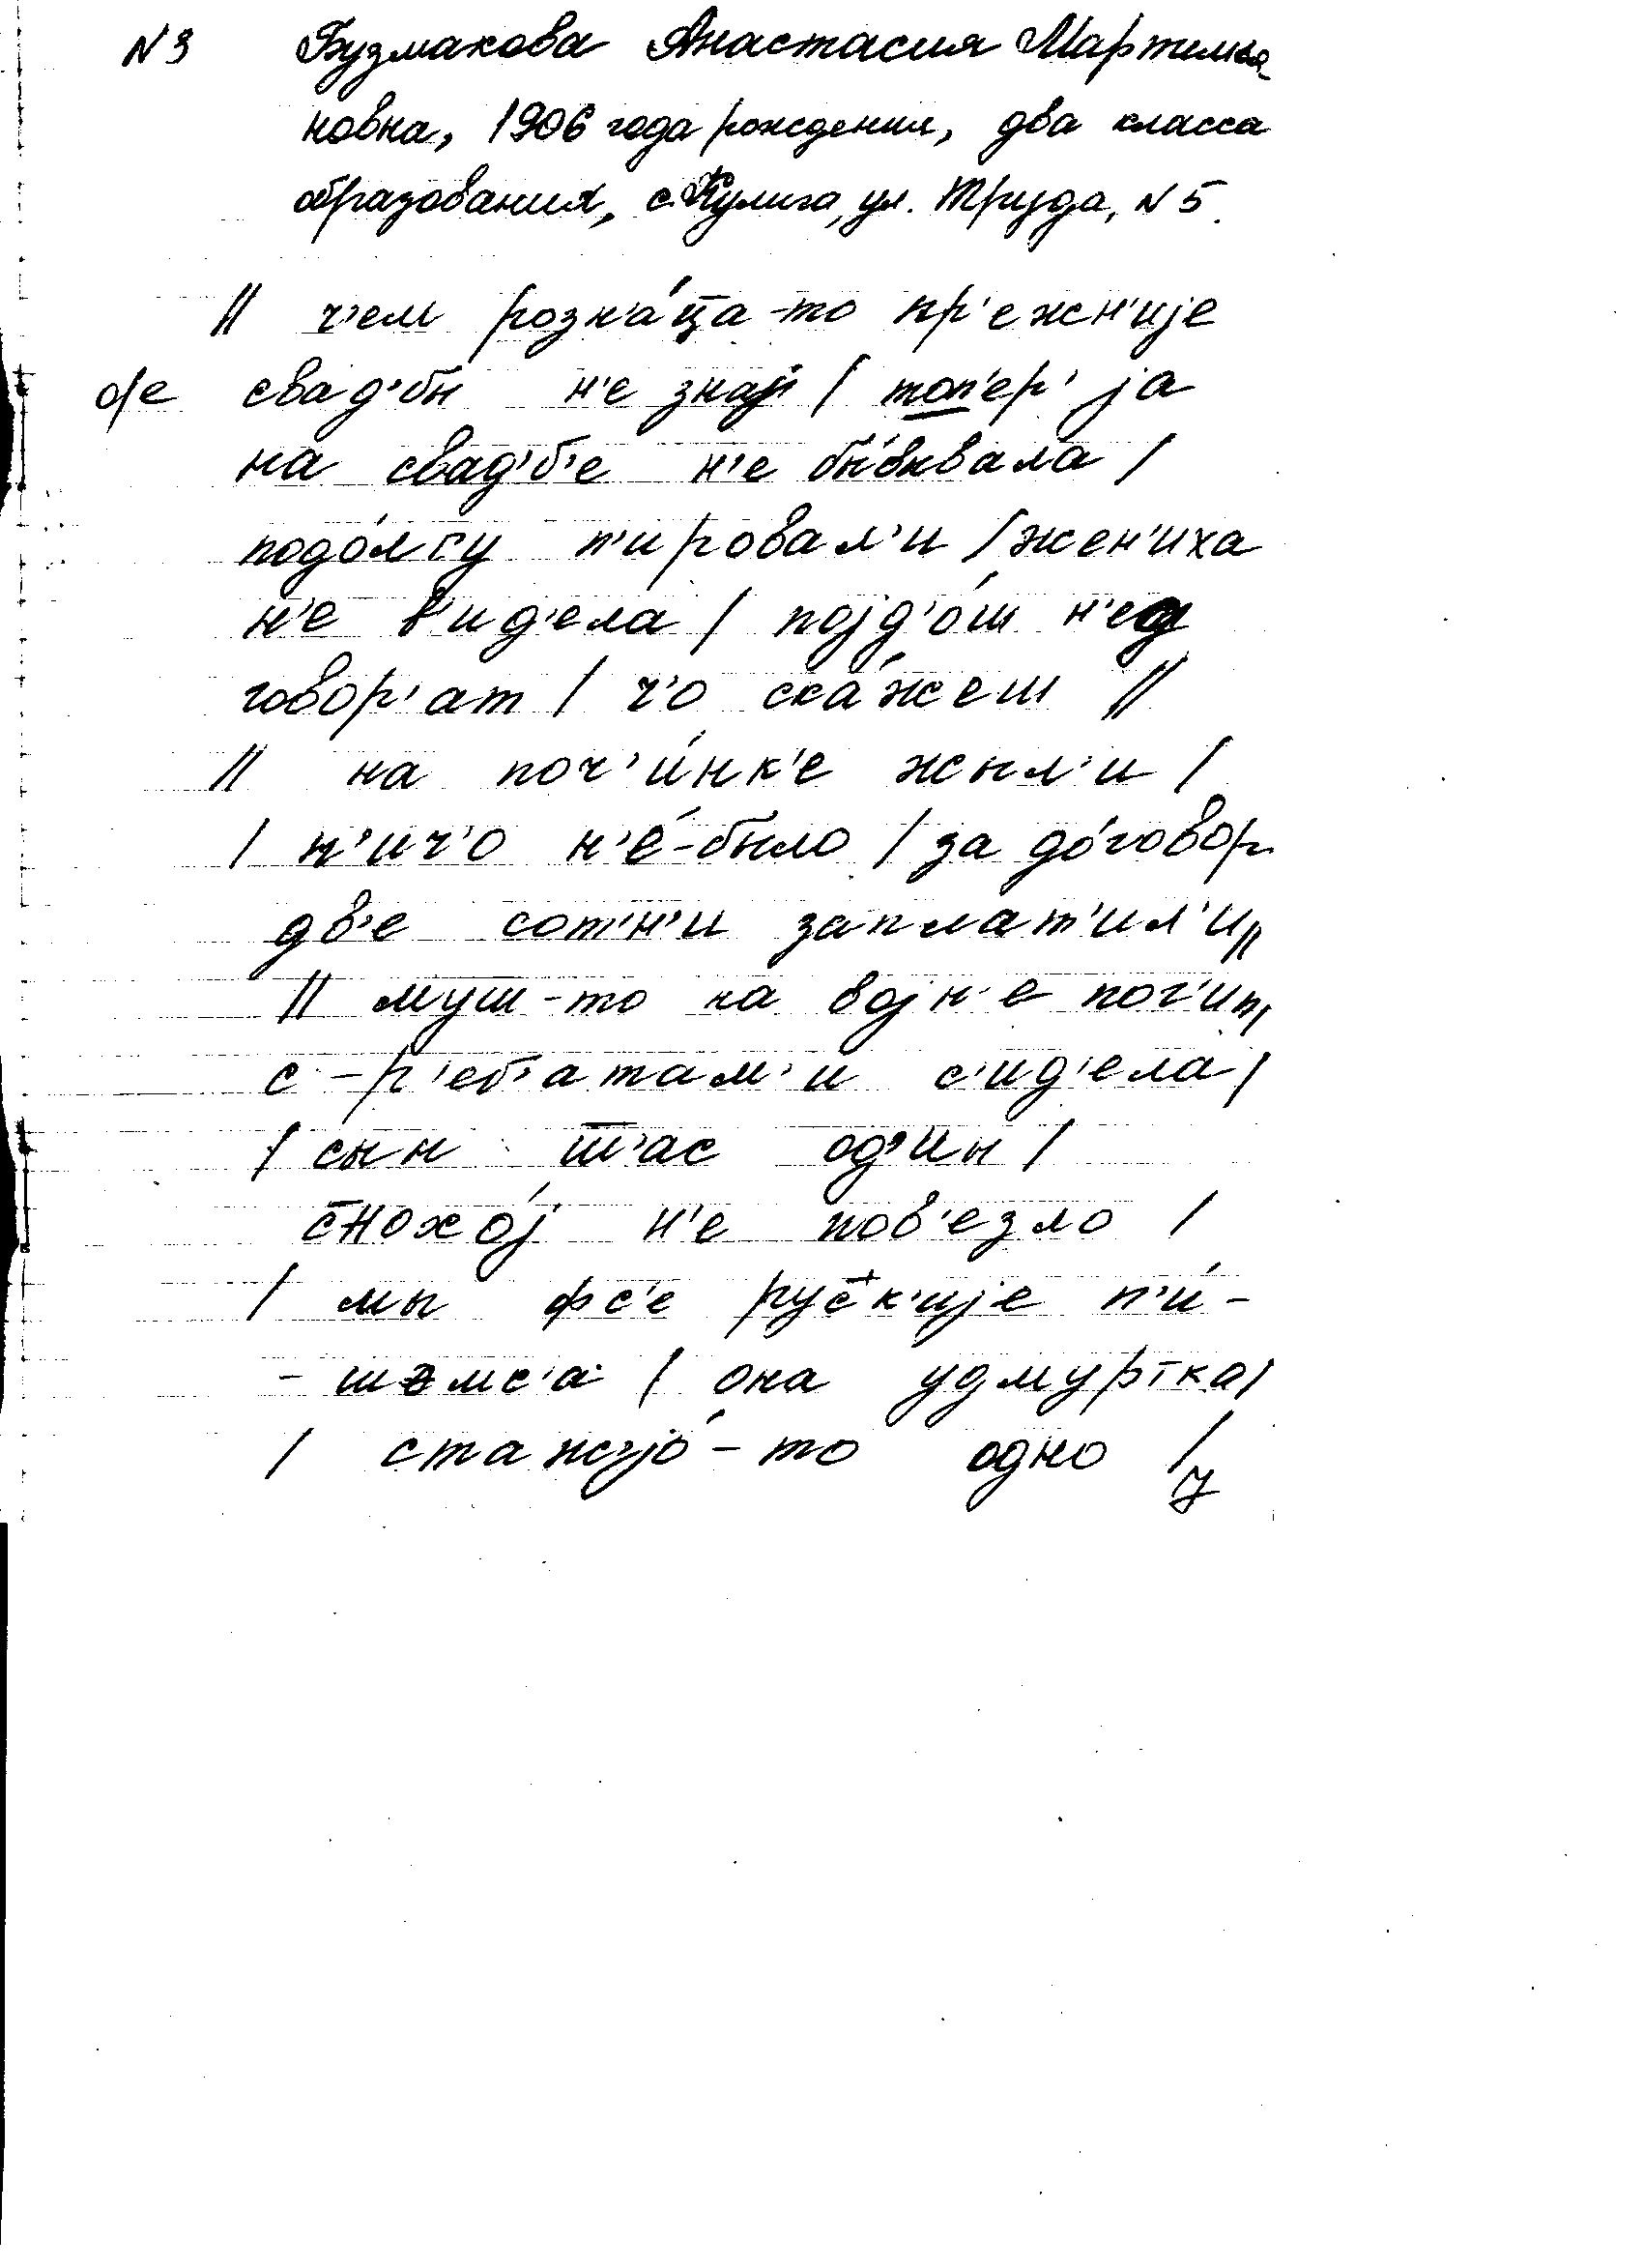 N 3 Бузмакова Анастасия Мартимья-
новна, 1906 года рождения, два класса
образования, с. Кулига, ул. Труда, N 5.
// ч'ем розна́ц̄а-то пр'ежн'иjе
о/е свад'бы н'е знаjу / топ'ер' jа
на свад'б'е н'е бы́вывала /
подо́лгу п'ировал'и / жен'иха
н'е в'ид'ела / поjд'о́ш н'ет
говор'ат / ч'о ска́жеш //
// на поч'и́нк'е жыл'и /
/ н'ич'о н'е́-было / за до́говор
дв'е сот'н'и заплат'ил'и //
// муш-то на воjн'е пог'ип /
с-р'еб'атам'и с'ид'ела /
/ сын ш̄'ас од'ин /
с̄нохо́j н'е пов'езло /
/ мы фс'е рус̄к'иjе п'и́-
- шемс'а / она удмуртка /
/ стажjо́-то одно /
7